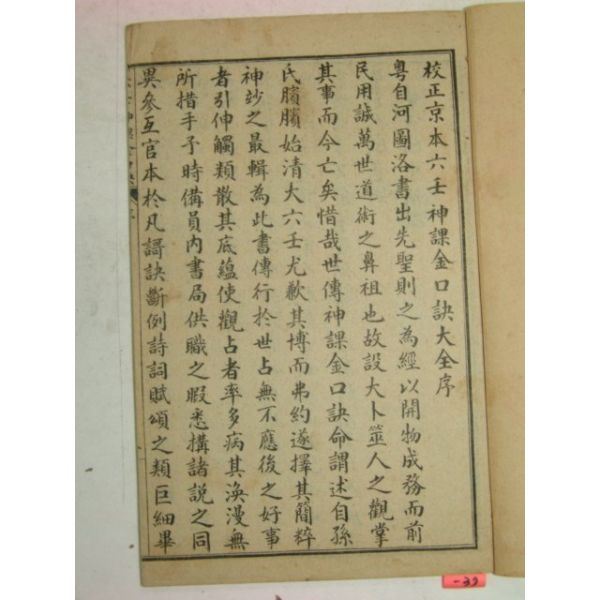 校正京本六壬神課金口訣大全序
粤自河圖洛書出先聖則之為經以開物成務而前
民用誠萬世道術之鼻祖也故設大卜筮人之觀掌
其事而今亡矣惜哉世傳神課金口訣命謂述自孫
氏臏臏始清大六壬尤歉其博而弗約遂擇其簡粹
神妙之最輯為此書傳行於世占無不應後之好事
者引伸觸類散其底蘊使觀占者率多病其渙漫無
所措手予時備員內書局供職之暇悉搆諸說之同
異參互官本於凡謌訣斷例詩詞賦頌之類巨細畢
-39